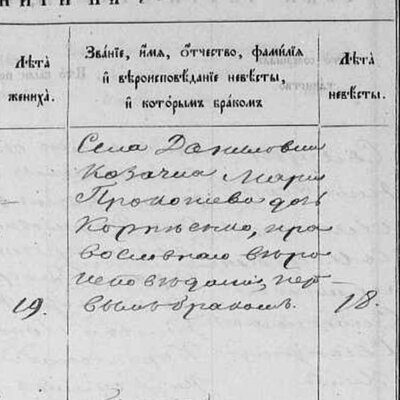 Лѣта жениха.
Званіе, имя, отчество, фамилія
и вѣроисповѣданіе невѣсты,
и которымъ бракомъ
Лѣта невѣсты.
Села Даниловки
козачка Мария
Прокопіева дочь
пра
вославнаго вѣро
исповѣданія, пер
вымъ бракомъ.
19.
18.